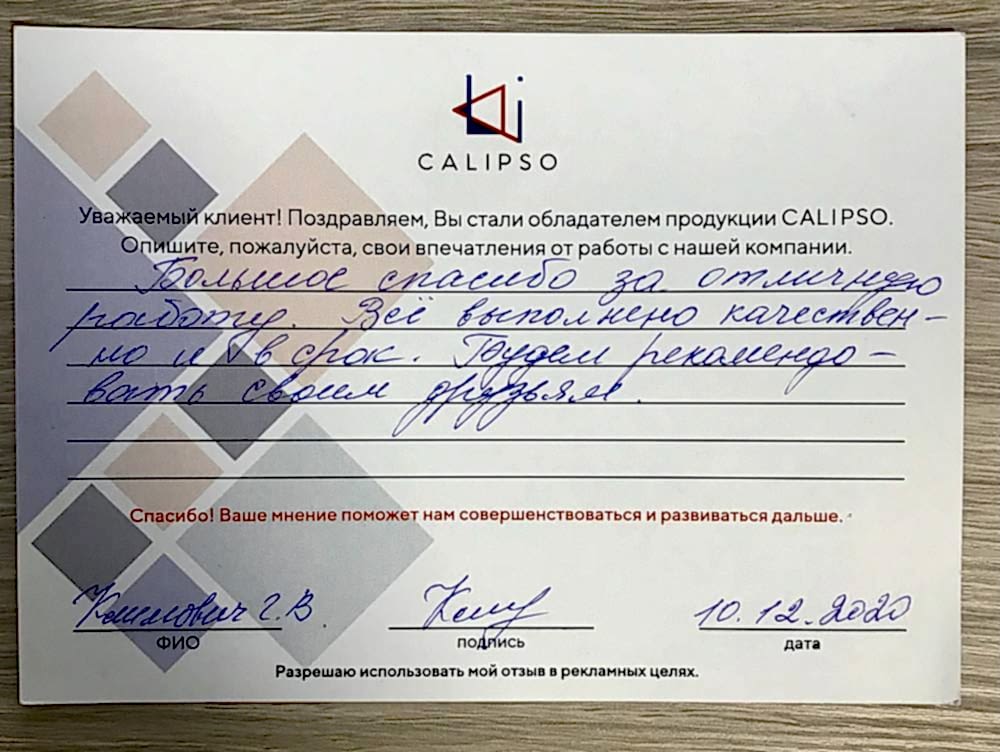 CALIPSO
Уважаемый клиент! Поздравляем, Вы стали обладателем продукции CALIPSO.
Опишите, пожалуйста, свои впечатления от работы с нашей компании.
Большое спасибо за отличную
работу. Всё выполнено качествен-
но и в срок. Будем рекомендо-
вать своим друзьям.
Спасибо! Ваше мнение поможет нам совершенствоваться и развиваться дальше.
Г.В. 10.12.2020
ФИО подпись дата
Разрешаю использовать мой отзыв в рекламных целях.